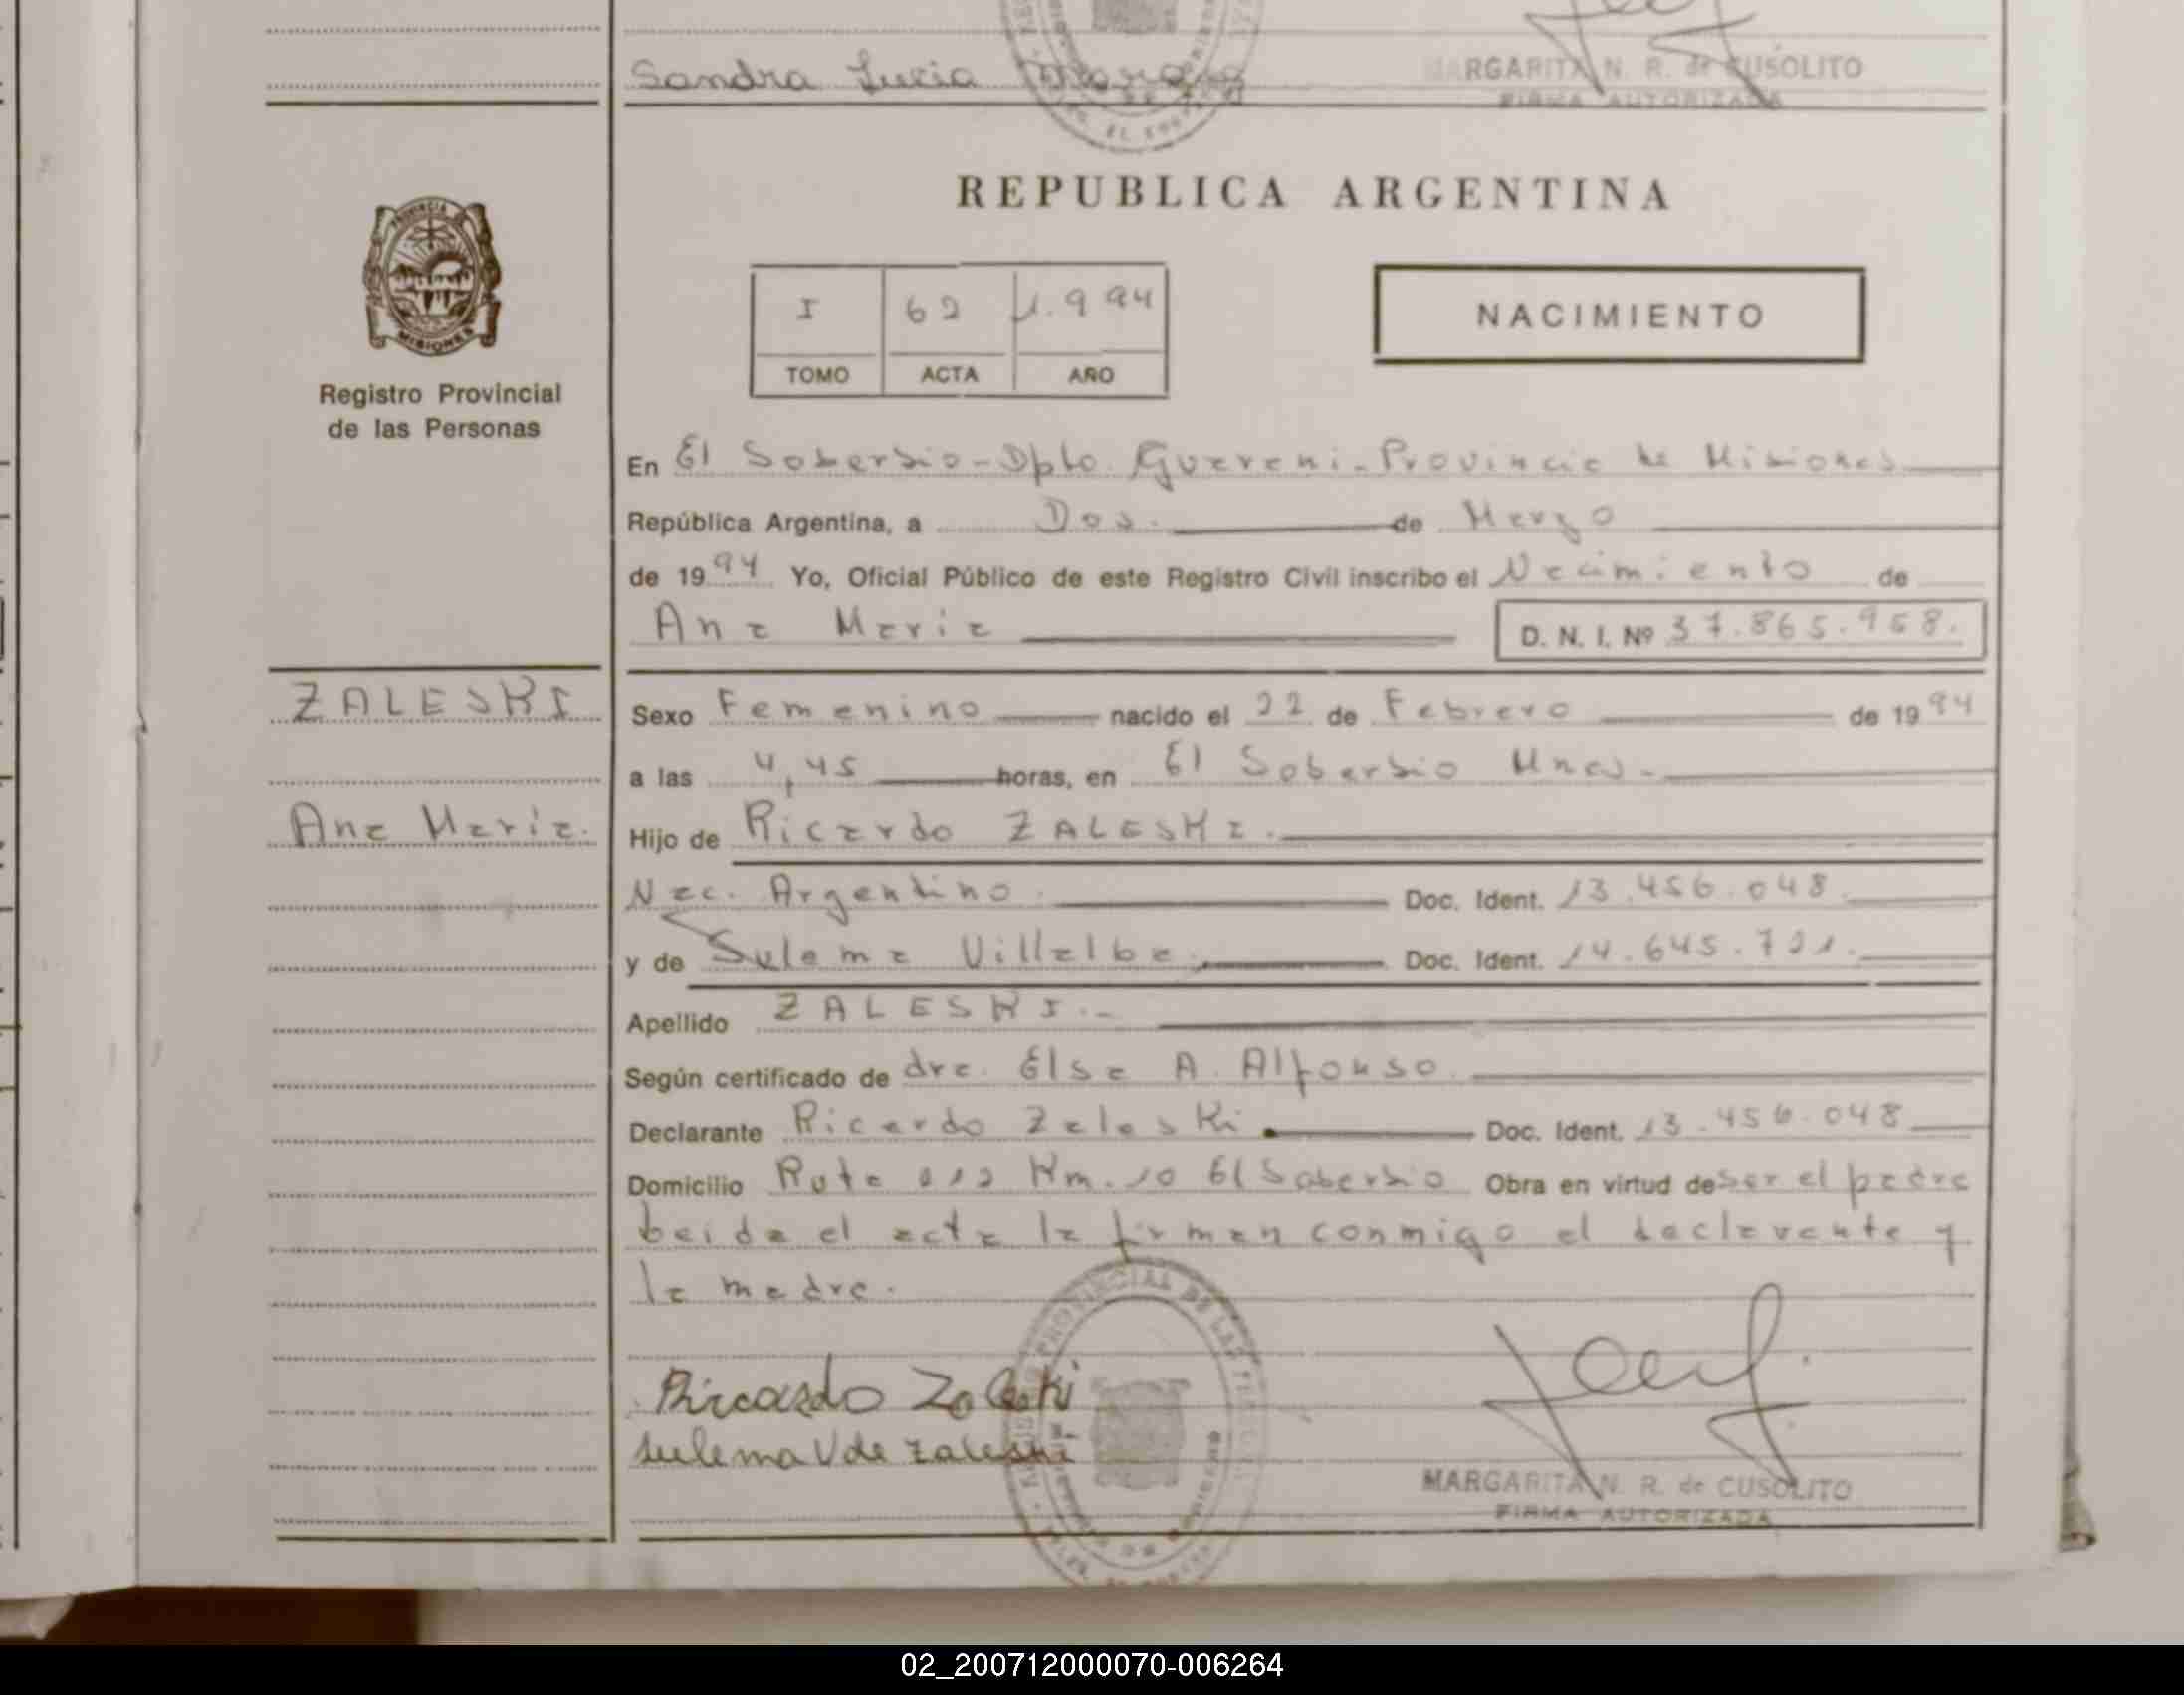 Sandra Lucia
MARGARITA N. R. de CUSOLITO
FIRMA AUTORIZADA
REPUBLICA ARGENTINA
PROVINCIA
MISIONES
Registro Provincial
de las Personas
I 62 1.994
TOMO ACTA AÑO
NACIMIENTO
En El Soberbio - Dpto. Guarani - Provincia de Misiones
República Argentina, a Dos. de Marzo
de 1994 Yo, Oficial Público de este Registro Civil inscribo el Nacimiento de
Ana Maria D. N. I. Nº 37.865.958.
ZALESKI
Sexo Femenino nacido el 22 de Febrero de 1994
a las 4,45 horas, en El Soberbio Mnes.
Ana Maria.
Hijo de Ricardo ZALESKI.
Nac. Argentino. Doc. Ident. 13.456.048
y de Sulema Villalba. Doc. Ident. 14.645.721.
Apellido ZALESKI.-
Según certificado de dra. Elsa A. Alfonso.
Declarante Ricardo Zaleski Doc. Ident. 13.456.048
Domicilio Ruta 212 Km. 10 El Soberbio Obra en virtud de ser el padre
Leida el acta la firman conmigo el declarante y
la madre.
Ricardo Zaleski
Sulema V de Zaleski
MARGARITA N. R. de CUSOLITO
FIRMA AUTORIZADA
02_200712000070-006264